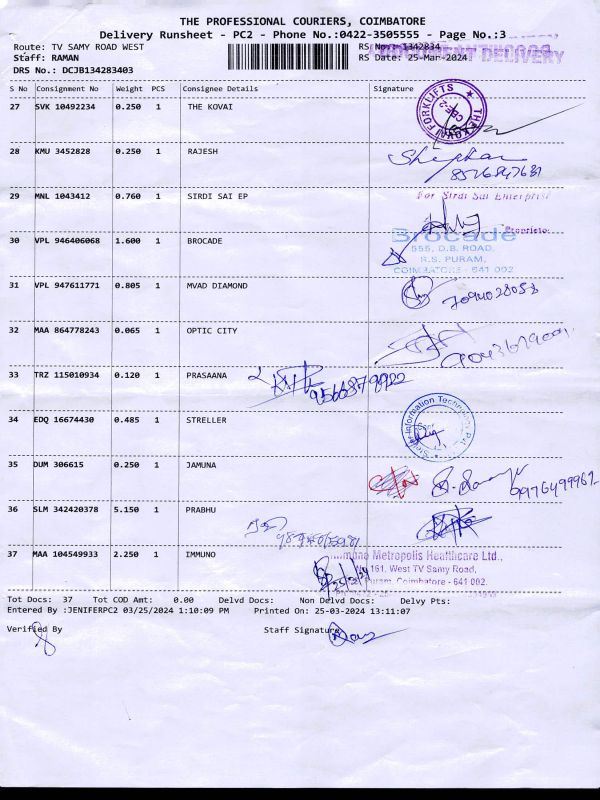 THE PROFESSIONAL COURIERS, COIMBATORE
Delivery Runsheet - PC2 - Phone No.:0422-3505555 - Page No.:3
Route: TV SAMY ROAD WEST RS No.: 1342834
Staff: RAMAN RS Date: 25-Mar-2024
DOCUMENT DELIVERY
DRS No.: DCJB134283403
S No Consignment No Weight PCS Consignee Details Signature
27 SVK 10492234 0.250 1 THE KOVAI
THE KOVAI FORKLIFTS
CBE-12
28 KMU 3452828 0.250 1 RAJESH
8526847631
29 MNL 1043412 0.760 1 SIRDI SAI EP
For Sirdi Sai Enterprise
Proprietor
30 VPL 946406068 1.600 1 BROCADE
Brocade
555, D.B. ROAD,
R.S. PURAM,
COIMBATORE - 641 002
31 VPL 947611771 0.805 1 MVAD DIAMOND
7094028058
32 MAA 864778243 0.065 1 OPTIC CITY
33 TRZ 115010934 0.120 1 PRASAANA
9566879922
34 EDQ 16674430 0.485 1 STRELLER
Information Technology
35 DUM 306615 0.250 1 JAMUNA
9976499962
36 SLM 342420378 5.150 1 PRABHU
37 MAA 104549933 2.250 1 IMMUNO
Metropolis Healthcare Ltd.,
161, West TV Samy Road,
Puram, Coimbatore - 641 002.
Tot Docs: 37 Tot COD Amt: 0.00 Delvd Docs: Non Delvd Docs: Delvy Pts:
Entered By :JENIFERPC2 03/25/2024 1:10:09 PM Printed On: 25-03-2024 13:11:07
Verified By Staff Signature